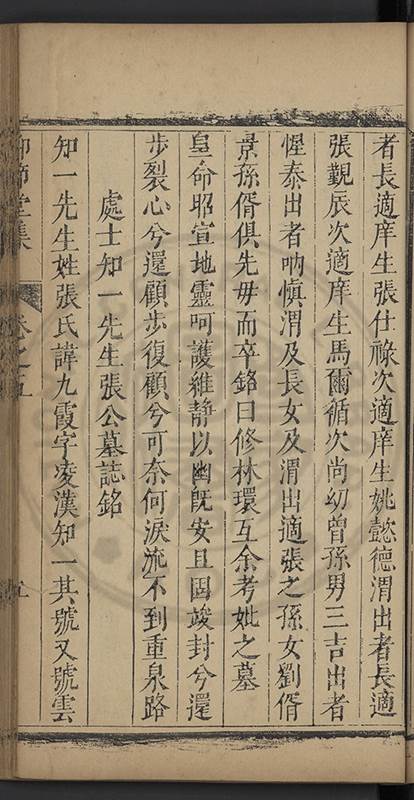 者長適庠生張仕祿次適庠生姚懿德渭出者長適
張覲辰次適庠生馬爾循次尚幼曾孫男三吉出者
惺泰出者吶慎渭及長女及渭出適張之孫女劉偦
景孫偦俱先毋而卒銘曰修林環互余考妣之墓
皇命昭宣地靈呵護維静以幽旣安且固竣封兮還
步裂心兮還顧步復顧兮可奈何淚流不到重泉路
處士知一先生張公墓誌銘
知一先生姓張氏諱九霞字凌漢知一其號又號雲
師堂集
卷之五